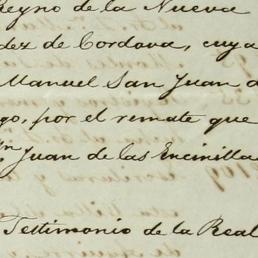 Reyno de la Nueva
dez de Cordova, cuya
Manuel San Juan d
go, por el remate que
n Juan de las Encinilla
Testimonio de la Real